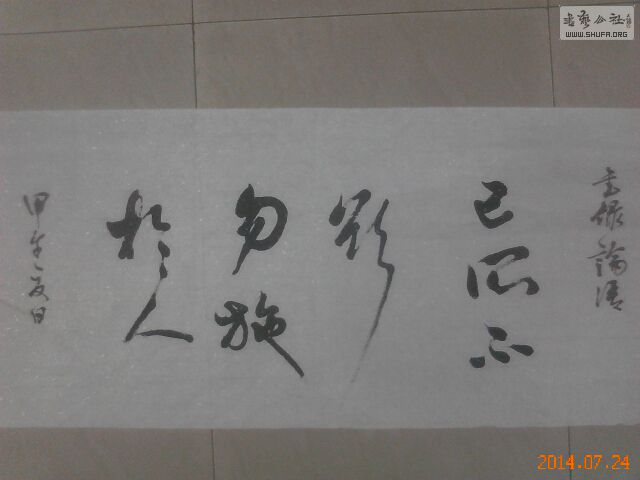 書錄論語
己所不
欲
勿施
於人
甲午夏日
書藝公社
WWW.SHUFA.ORG
2014.07.24